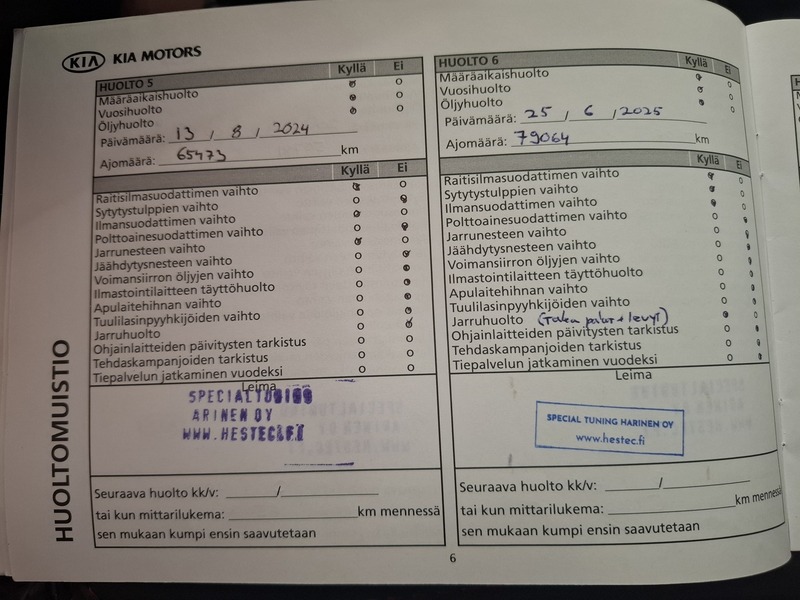 KIA KIA MOTORS
HUOLTO 5 Kyllä Ei
Määräaikaishuolto
Vuosihuolto
Öljyhuolto
Päivämäärä: 13 / 8 / 2024
Ajomäärä: 65473 km
Kyllä Ei
Raitisilmasuodattimen vaihto
Sytytystulppien vaihto
Ilmansuodattimen vaihto
Polttoainesuodattimen vaihto
Jarrunesteen vaihto
Jäähdytysnesteen vaihto
Voimansiirron öljyjen vaihto
Ilmastointilaitteen täyttöhuolto
Apulaitehihnan vaihto
Tuulilasinpyyhkijöiden vaihto
Jarruhuolto
Ohjainlaitteiden päivitysten tarkistus
Tehdaskampanjoiden tarkistus
Tiepalvelun jatkaminen vuodeksi
Leima
SPECIALTUNING
ARINEN OY
WWW.HESTEC.FI
Seuraava huolto kk/v: /
tai kun mittarilukema: km mennessä
sen mukaan kumpi ensin saavutetaan
HUOLTO 6 Kyllä Ei
Määräaikaishuolto
Vuosihuolto
Öljyhuolto
Päivämäärä: 25 / 6 / 2025
Ajomäärä: 79064 km
Kyllä Ei
Raitisilmasuodattimen vaihto
Sytytystulppien vaihto
Ilmansuodattimen vaihto
Polttoainesuodattimen vaihto
Jarrunesteen vaihto
Jäähdytysnesteen vaihto
Voimansiirron öljyjen vaihto
Ilmastointilaitteen täyttöhuolto
Apulaitehihnan vaihto
Tuulilasinpyyhkijöiden vaihto
Jarruhuolto (Taka palat + levyt)
Ohjainlaitteiden päivitysten tarkistus
Tehdaskampanjoiden tarkistus
Tiepalvelun jatkaminen vuodeksi
Leima
SPECIAL TUNING HARINEN OY
www.hestec.fi
Seuraava huolto kk/v: /
tai kun mittarilukema: km mennessä
sen mukaan kumpi ensin saavutetaan
HUOLTOMUISTIO
6